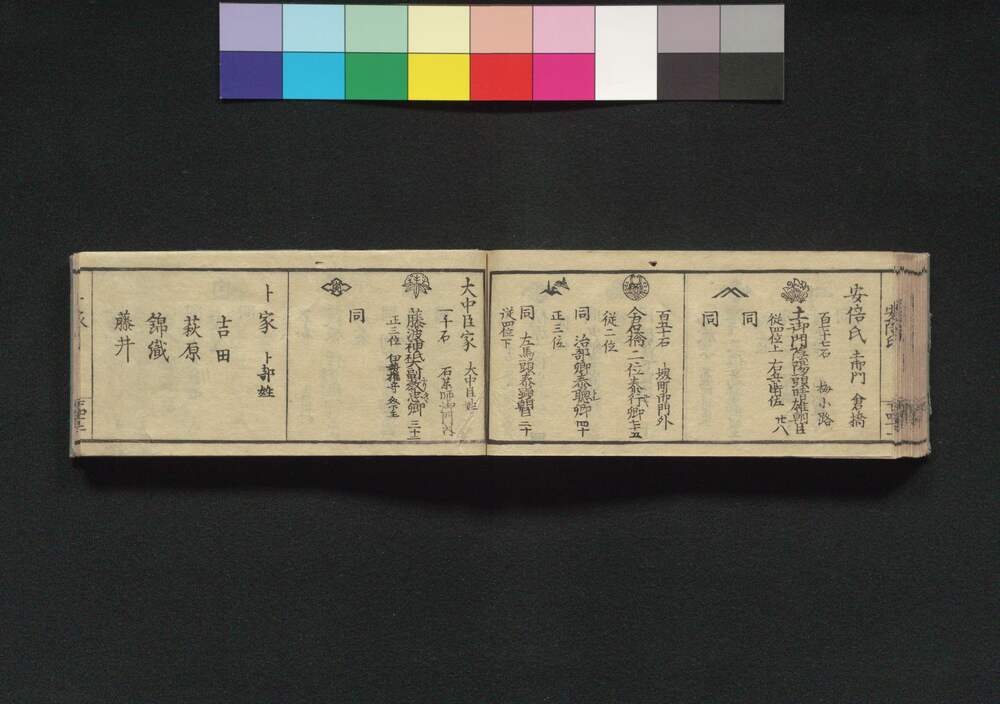 安倍氏 土御門 倉橋
百七十七石 梅小路
土御門陰陽頭晴雄朝臣 廿八
従四位上 右兵衛佐
同
同
百五十石 堺町御門外
倉橋二位泰行卿 七十五
従二位
同 治部卿泰聰卿 四十
正三位
同 左馬頭泰顯朝臣 二十
従四位下
大中臣家 大中臣姓
一千石 石薬師御門内
藤波神祇大副教忠卿 三十二
正三位 伊勢祭主
同
卜家 卜部姓
吉田
萩原
錦織
藤井